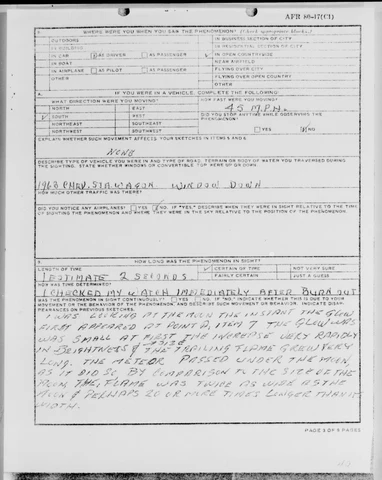 AFR 80-17(C1)
WHERE WERE YOU WHEN YOU SAW THE PHENOMENON? (Check appropriate blocks.)
OUTDOORS
IN BUSINESS SECTION OF CITY
IN BUILDING
IN RESIDENTIAL SECTION OF CITY
IN CAR
AS DRIVER
AS PASSENGER
IN OPEN COUNTRYSIDE
IN BOAT
NEAR AIRFIELD
IN AIRPLANE
AS PILOT
AS PASSENGER
FLYING OVER CITY
OTHER
FLYING OVER OPEN COUNTRY
OTHER
IF YOU WERE IN A VEHICLE, COMPLETE THE FOLLOWING:
WHAT DIRECTION WERE YOU MOVING?
HOW FAST WERE YOU MOVING?
NORTH
EAST
45 M.P.H.
SOUTH
WEST
DID YOU STOP ANYTIME WHILE OBSERVING THE PHENOMENON?
NORTHEAST
SOUTHEAST
NORTHWEST
SOUTHWEST
YES
NO
EXPLAIN WHETHER SUCH MOVEMENT AFFECTS YOUR SKETCHES IN ITEMS 5 AND 6
NONE
DESCRIBE TYPE OF VEHICLE YOU WERE IN AND TYPE OF ROAD, TERRAIN OR BODY OF WATER YOU TRAVERSED DURING
THE SIGHTING. STATE WHETHER WINDOWS OR CONVERTIBLE TOP WERE UP OR DOWN.
1968 CHEV. STA. WAGON WINDOW DOWN
HOW MUCH OTHER TRAFFIC WAS THERE?
DID YOU NOTICE ANY AIRPLANES?
YES
NO
IF "YES," DESCRIBE WHEN THEY WERE IN SIGHT RELATIVE TO THE TIME
OF SIGHTING THE PHENOMENON AND WHERE THEY WERE IN THE SKY RELATIVE TO THE POSITION OF THE PHENOMENON.
HOW LONG WAS THE PHENOMENON IN SIGHT?
LENGTH OF TIME
CERTAIN OF TIME
NOT VERY SURE
ESTIMATE 2 SECONDS
FAIRLY CERTAIN
JUST A GUESS
HOW WAS TIME DETERMINED?
I CHECKED MY WATCH IMMEDIATELY AFTER BURN OUT
WAS THE PHENOMENON IN SIGHT CONTINUOUSLY?
YES
NO
IF "NO," INDICATE WHETHER THIS IS DUE TO YOUR
MOVEMENT OR THE BEHAVIOR OF THE PHENOMENON, AND DESCRIBE SUCH MOVEMENT OR BEHAVIOR. INDICATE DISAP-
PEARANCES ON PREVIOUS SKETCHES.
I WAS LOOKING AT THE MOON THE INSTANT THE GLOW
FIRST APPEARED AT POINT A, ITEM 7 THE GLOW WAS
WAS SMALL AT FIRST THE INCREASE VERY RAPIDLY
IN BRIGHTNESS & SIZE THE TRAILING FLAME GREW VERY
LONG. THE METEOR PASSED UNDER THE MOON,
AS IT DID SO BY COMPARISON TO THE SIZE OF THE
MOON THE FLAME WAS TWICE AS WIDE AS THE
MOON & PERHAPS 20 OR MORE TIMES LONGER THAN ITS
WIDTH.
PAGE 3 OF 5 PAGES